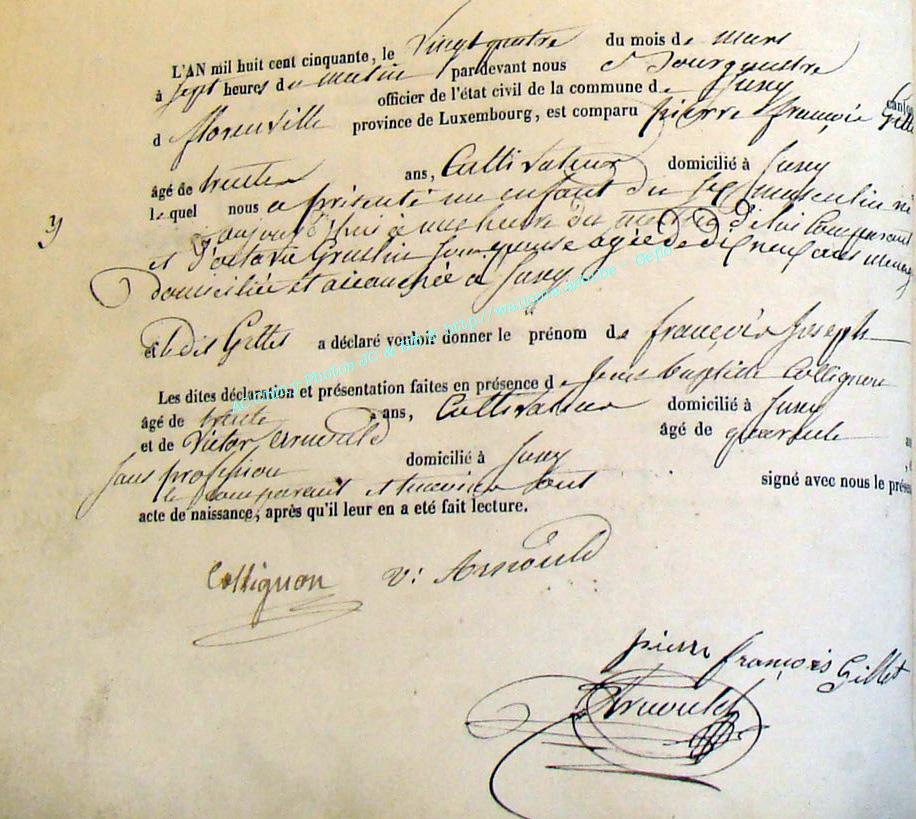 L'AN mil huit cent cinquante, le vingt quatre du mois de mars
à sept heures du matin pardevant nous Bourgmestre
officier de l'état civil de la commune de Jusey canton
d florenville province de Luxembourg, est comparu pierre françois Gillet
âgé de trente ans, Cultivateur domicilié à Jusey
lequel nous a présenté un enfant du sexe masculin né
aujourd'huis à une heure du matin de lui Comparant
et d' son epouse agée de dix neuf ans
domiciliée et accouchée a Jusey
y
et ledit Gillet a déclaré vouloir donner le prénom de françois Joseph
Les dites déclaration et présentation faites en présence de Jean baptiste Collignon
âgé de trente ans, Cultivateur domicilié à Jusey
et de Victor Arnould âgé de quarante
sans profession domicilié à Jusey
le comparant et temoins ont signé avec nous le présent
acte de naissance, après qu'il leur en a eté fait lecture.
Collignon V: Arnould
pierre françois Gillet
Arnould